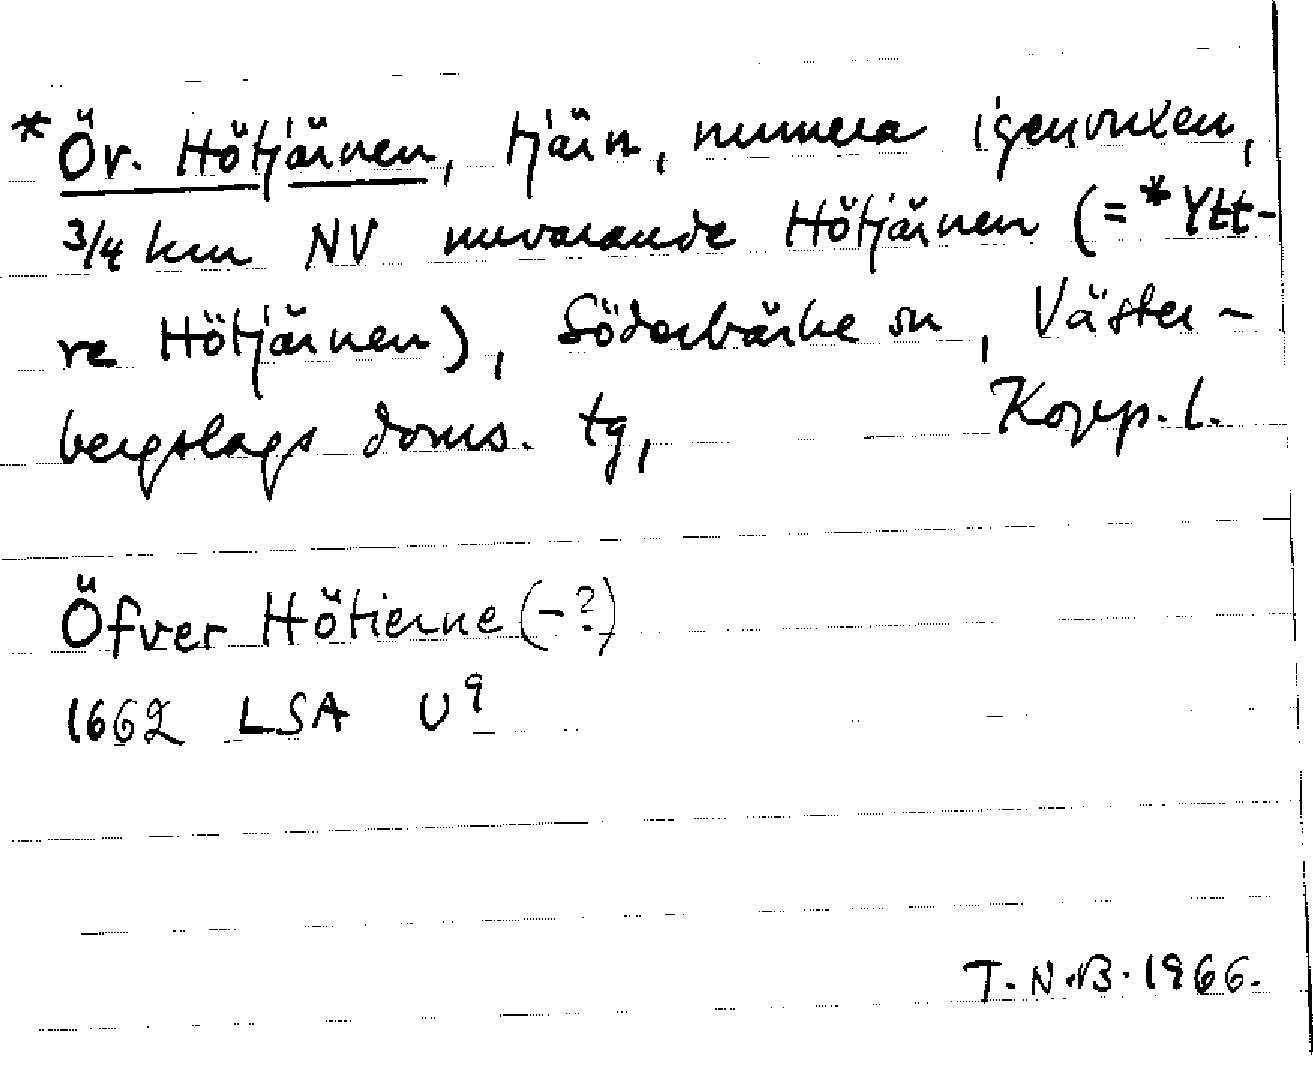 *Öv. Hötjärnen, tjärn, numera igenvuxen,
3/4 km NV nuvarande Hötjärnen (=*Ytt-
re Hötjärnen), Söderbärke sn, Väster-
bergslags doms. tg, Kopp. l.
Öfver Hötierne(-?)
1662 LSA U9
T.N.B. 1966.